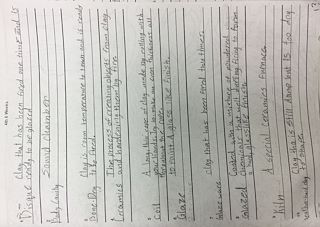 Clay that has been fired one time and is
"Bisque ready to be glazed
Sound chamber
Body Cavity
Clay is room temperature to touch and is ready
Bone Dry to be fired.
The process of creating objects from clay
Ceramics and hardening them by fire
A long thin rope of clay made by rolling with
Coil
to paint a glass like finish.
Glaze
Clay that has been fired two times.
Glaze ware
Coated with a mixture of powdered
Glazed chemicals that melt during firing to form
A special ceramics furnace
"Kiln
Clay that is still damp but is too dry